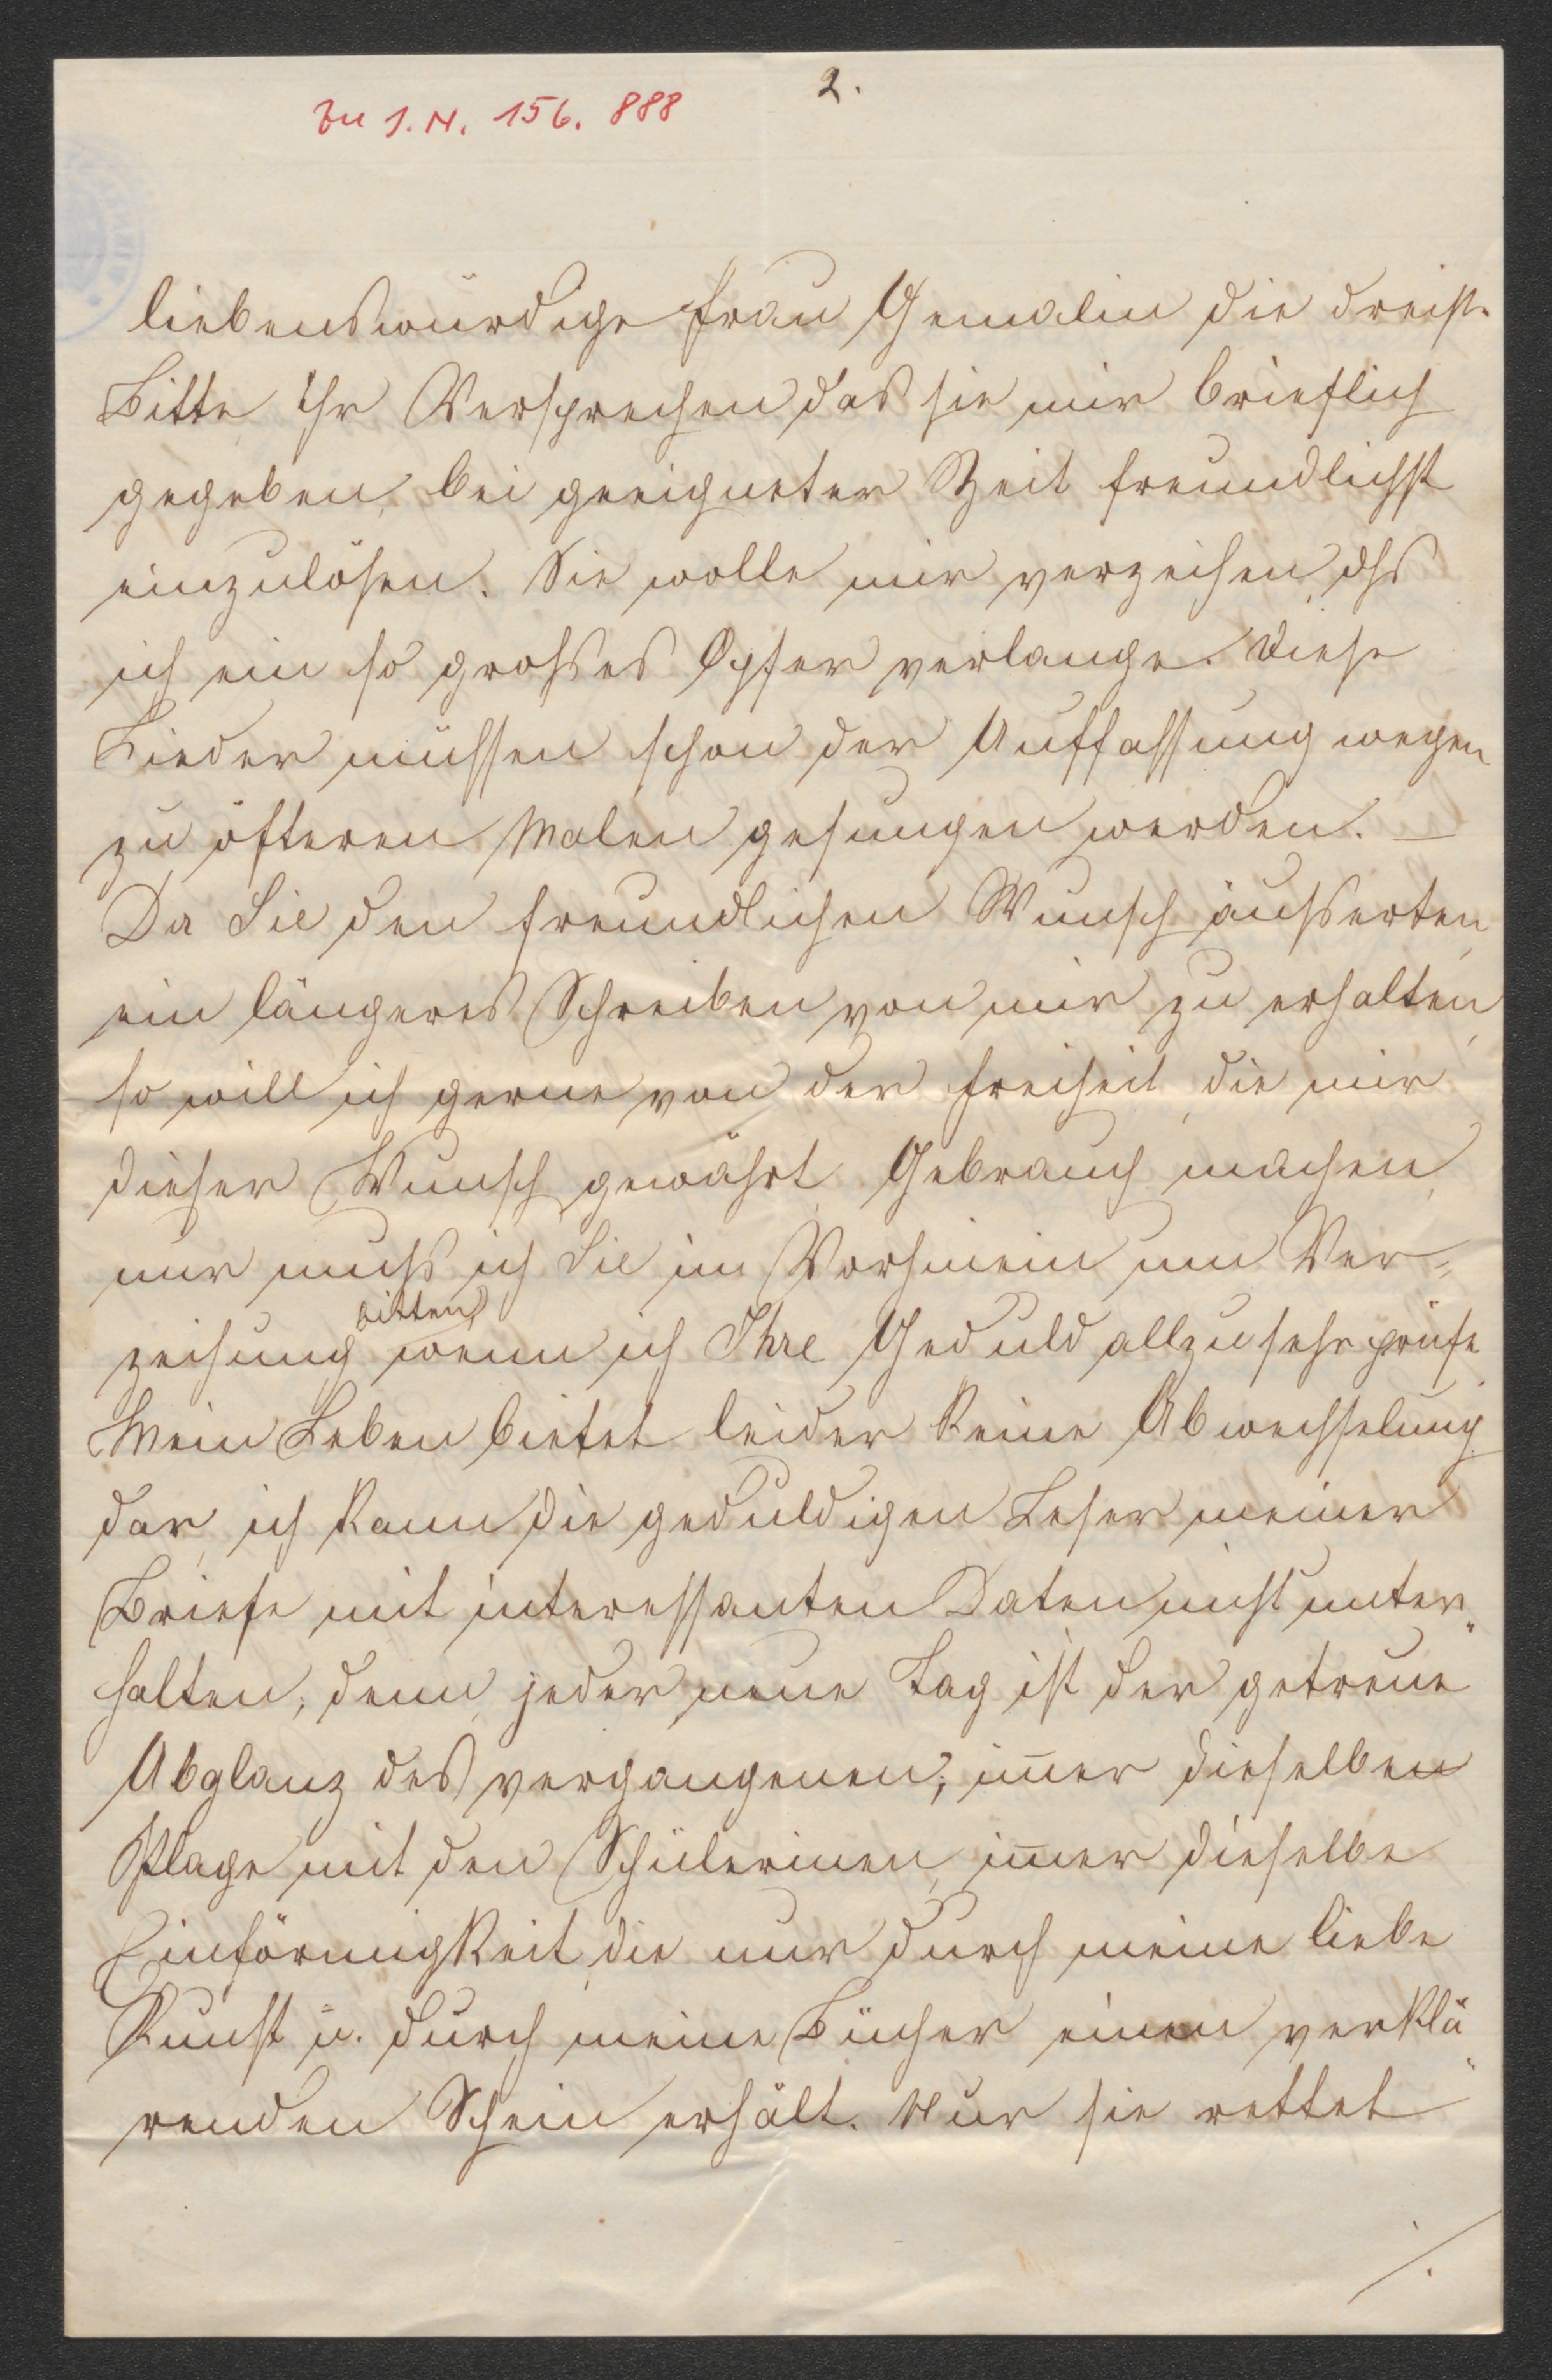 2.
Zu I. N. 156.888
liebenswürdige Frau Gemalin die dreist.
Bitte, ihr Versprechen das sie mir brieflich
gegeben, bei geeigneter Zeit freundlichst
einzulösen. Sie wolle mir verzeihen, dß
ich ein so großes Opfer verlange. Diese
Lieder müssen schon der Auffassung wegen
zu öfteren Malen gesungen werden. —
Da Sie den freundlichen Wunsch äußerten,
ein längeres Schreiben von mir zu erhalten,
so will ich gerne von der Freiheit, die mir
dieser Wunsch gewährt, Gebrauch machen,
nur muß ich Sie im Vorhinein um Ver=
zeihung bitten, wenn ich Ihre Geduld allzusehr prüfe.
Mein Leben bietet leider keine Abwechselung
dar, ich kann die geduldigen Leser meiner
Briefe mit interessanten Daten nicht unter"
halten, denn jeder neue Tag ist der getreue
Abglanz des vergangenen; im̄er dieselben
Plage mit den Schülerinen, im̄er dieselbe
Einförmigkeit, die nur durch meine liebe
Kunst u. durch meine Bücher einen verklä"
renden Schein erhält. Nur sie rettet
/.